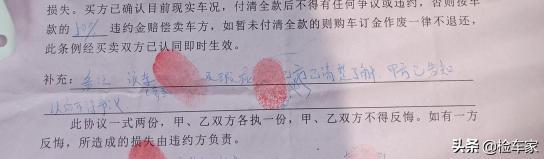 损失。买方已确认目前现实车况，付清全款后不得有任何争议或违约，否则按车
款的 50% 违约金赔偿卖车方，如暂未付清全款的则购车订金作废一律不退还，
此条例经买卖双方已认同即时生效。
补充：
已清楚了解，甲方已告知
此协议一式两份，甲、乙双方各执一份，甲、乙双方不得反悔。如有一方
反悔，所造成的损失由违约方负责。
头条 @检车家